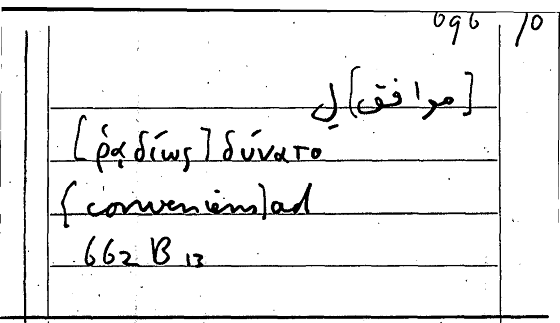 696 10
[موافق] ل
[ῥᾳδίως] δύνατο
[conveniens] ad
662 B 13